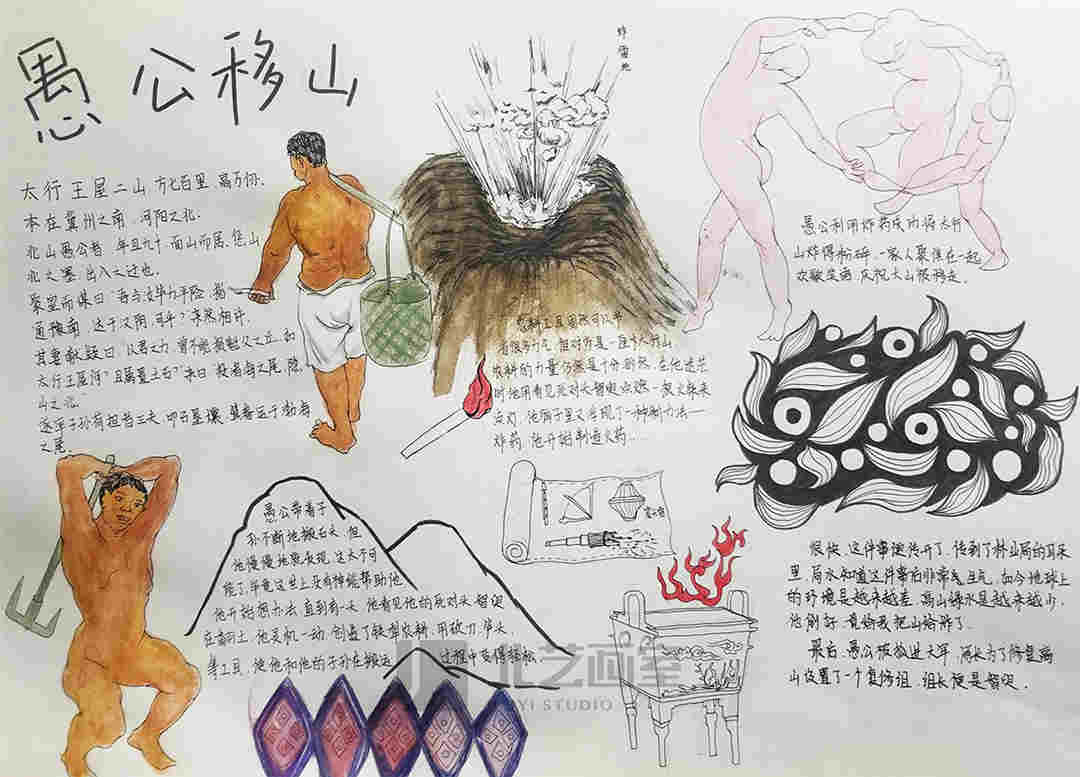 愚公移山
太行王屋二山,方七百里,高万仞.
本在冀州之南,河阳之北.
北山愚公者,年且九十,面山而居.惩山
北之塞,出入之迂也.
聚室而谋曰"吾与汝毕力平险,指
通豫南,达于汉阴,可乎?"杂然相许.
其妻献疑曰"以君之力,曾不能损魁父之丘,如
太行王屋何?且焉置土石?"杂曰"投诸渤之尾,隐
土之北."
遂率子孙荷担者三夫,叩石垦壤,箕畚运于渤海
之尾.
炸雷地
农耕工具固然可以节
省很多力气,但对于是一座大行山
农耕的力量仍然是十分渺然.在他迷茫
时他用看见死对头智叟点燃一根火柴来
点灯,他脑子里又出现了一种新办法——
炸药,他开始制造火药...
愚公利用炸药成功将太行
山炸得粉碎.一家人聚集在一起
欢歌笑语,庆祝大山被移走.
愚公带着子
孙不断地搬石头,但
他慢慢地要发现,这太不可
能了,毕竟这世上没有神能帮助他
他开始想办法,直到有一天,他看见他的死对头"智叟
在翻土,他灵机一动,创造了铁犁农耕,用砍刀,炉头
等工具,使他和他的子孙在搬运 过程中变得轻松.
很快,这件事便传开了,传到了林山局的耳朵
里,局长知道这件事后非常气生气,如今地球上
的环境是越来越差,高山绿水是越来越少.
他倒好,竟给我把山给炸了.
最后,愚公被放进大牢,局长为了修复高
山设置了一个复修组,组长便是智叟.
艺画室
YI STUDIO